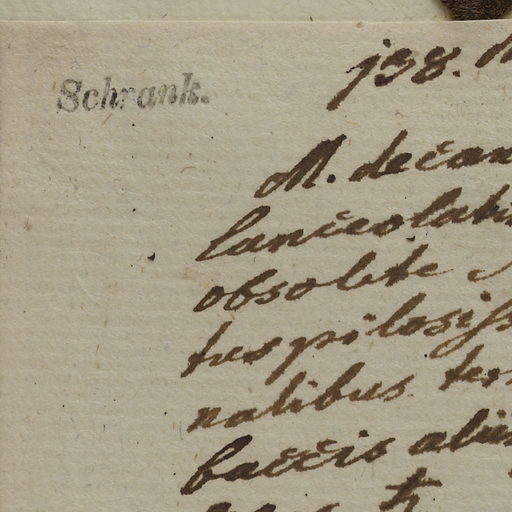 Schrank.
138.
M. decan
lanceolatis
obsolete
tus pilosiss
nalibus ter
baccis
ħ